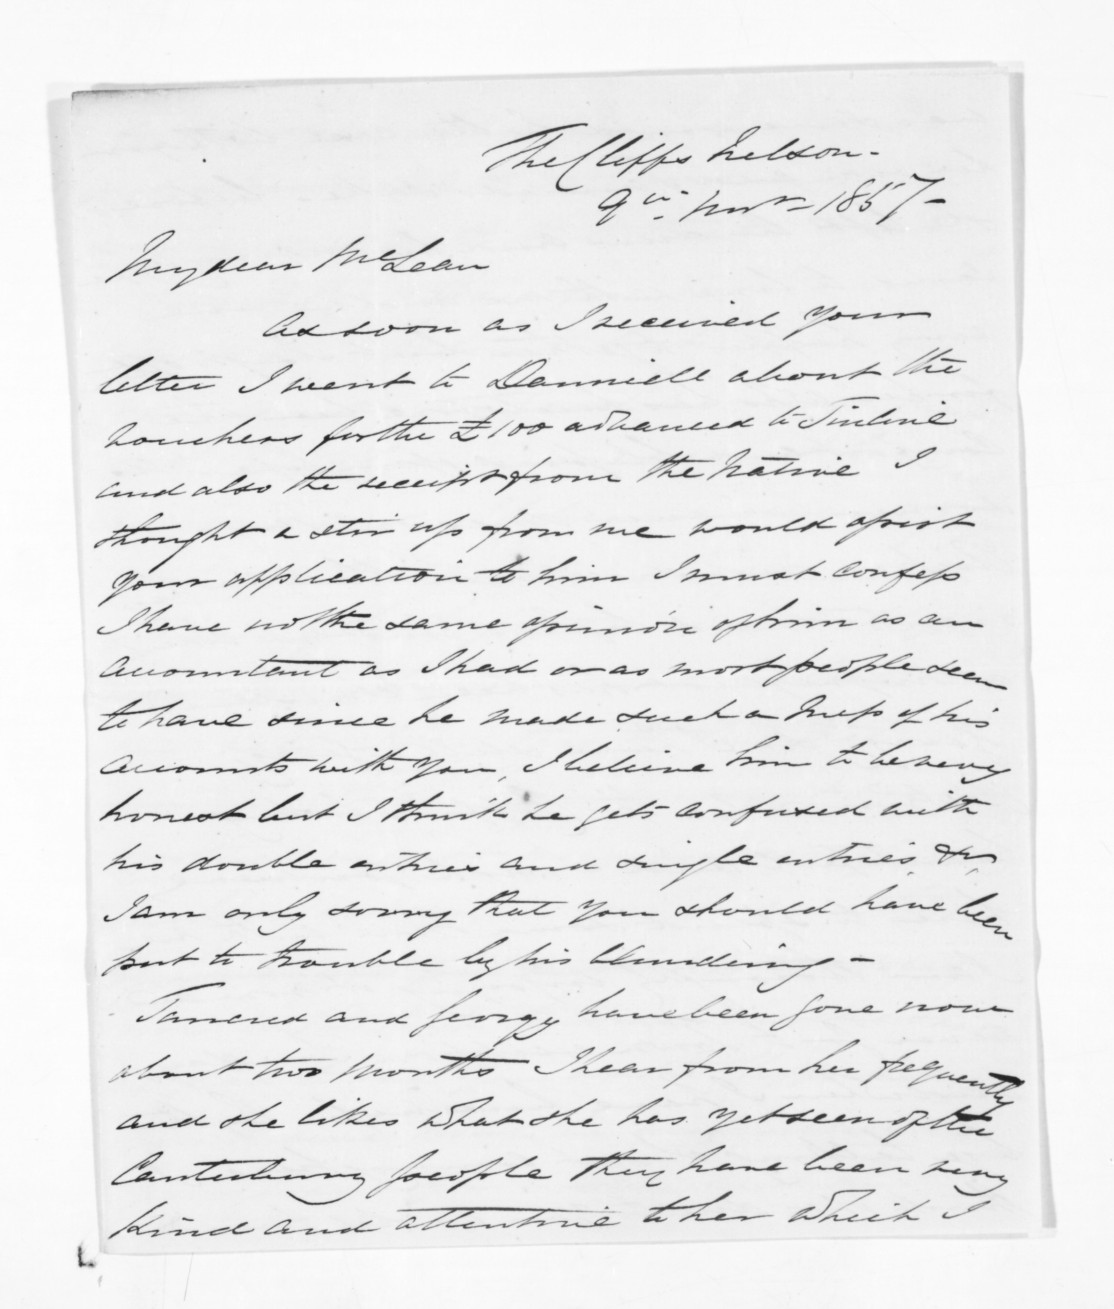 The Cliffs Nelson -
9th Novr 1857 -
My dear McLean
As soon as I received your
letter I went to Danniell about the
vouchers for the £100 advanced to Tinline
and also the receipt from the Native I
thought a stir up from me would assist
your application to him I must confess
I have not the same opinion of him as an
accountant as I had or as most people seem
to have since he made such a mess of his
accounts with you, I believe him to be very
honest but I think he gets confused with
his double entries and single entries &c,
I am only sorry that you should have been
put to trouble by his blundering -
Tancred and Georgy have been gone now
about two months I hear from her frequently
and she likes what she has yet seen of the
Canterbury people they have been very
kind and attentive to her which I